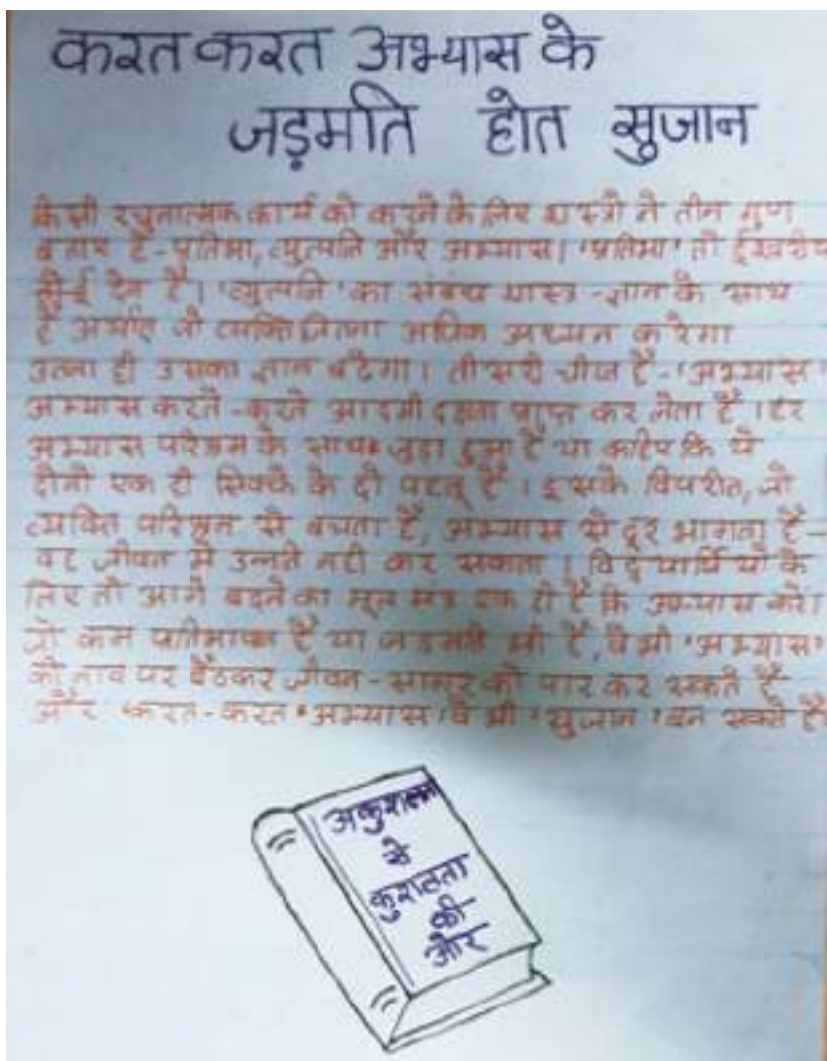 करत करत अभ्यास के
जड़मति होत सुजान
किसी रचनात्मक कार्य को करने के लिए शास्त्रों ने तीन गुण
बताए हैं - प्रतिभा, व्युत्पति और अभ्यास। 'प्रतिभा' तो ईश्वरीय
देन है। 'व्युत्पति' का संबंध शास्त्र - ज्ञान के साथ
है अर्थात जो व्यक्ति जितना अधिक अध्यन करेगा
उतना ही उसका ज्ञान बढेगा। तीसरी चीज है - 'अभ्यास'
अभ्यास करते - करते आदमी दक्षता प्राप्त कर लेता है।
अभ्यास परिश्रम के साथ जुड़ा हुआ है या कहिए कि ये
दोनो एक ही सिक्के के दो पहलू हैं। इसके विपरीत, जो
व्यक्ति परिश्रम से बचता है, अभ्यास से दूर भागता है -
वह जीवन में उन्नते नही कर सकता। विद्यार्थियों के
लिए तो आगे बढ़ने का मूल मंत्र एक ही है कि अभ्यास करें।
जो कम है या जड़मते भी है, वे भी 'अभ्यास'
की नाव पर बैठकर जीवन - सागर को पार कर सकते हैं
और करत - करत 'अभ्यास' वे भी 'सुजान' बन सकते हैं
अकुशलता
से
कुशलता
की
ओर